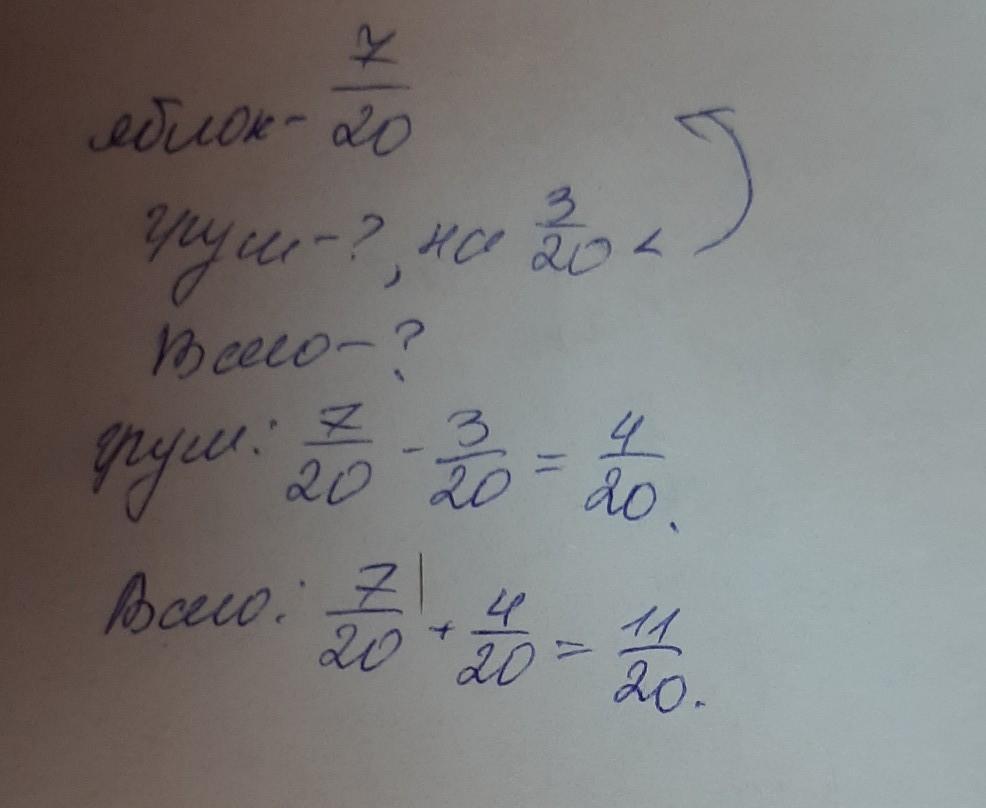 яблок - 7/20
груш - ?, на 3/20 <
Всего - ?
груш: 7/20 - 3/20 = 4/20.
Всего: 7/20 + 4/20 = 11/20.